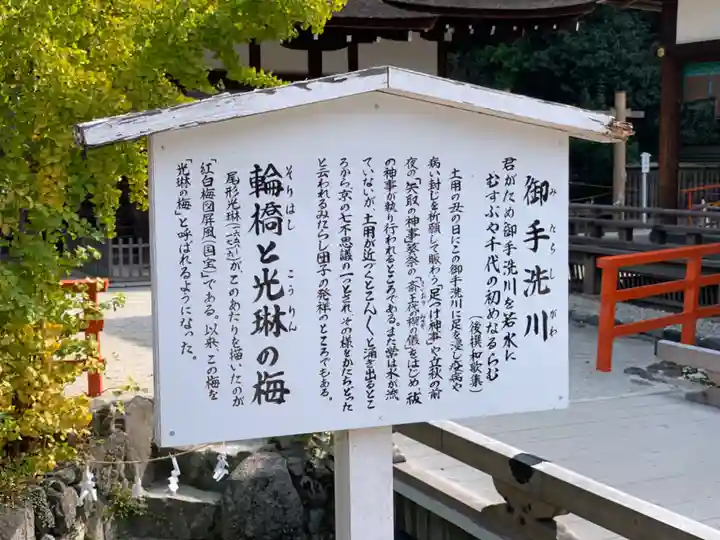 御手洗川
みたらしがわ
君がため御手洗川を若水に
むすぶや千代の初めなるらむ
(後撰和歌集)
土用の丑の日にこの御手洗川に足を浸し疫病や
病い封じを祈願して賑わう「足つけ神事」や立秋の前
夜の「矢取の神事」、葵祭の「斎王代の禊の儀」をはじめ、祓
の神事が執り行われるところである。また常は水が流れ
ていないが、土用が近づくとこんこんと湧き出るとこ
ろから京の七不思議の一つとされ、その様をかたちどった
と云われるみたらし団子の発祥のところでもある。
輪橋と光琳の梅
そりはし こうりん
尾形光琳が、このあたりを描いたのが
「紅白梅図屏風(国宝)」である。以来、この梅を
「光琳の梅」と呼ばれるようになった。